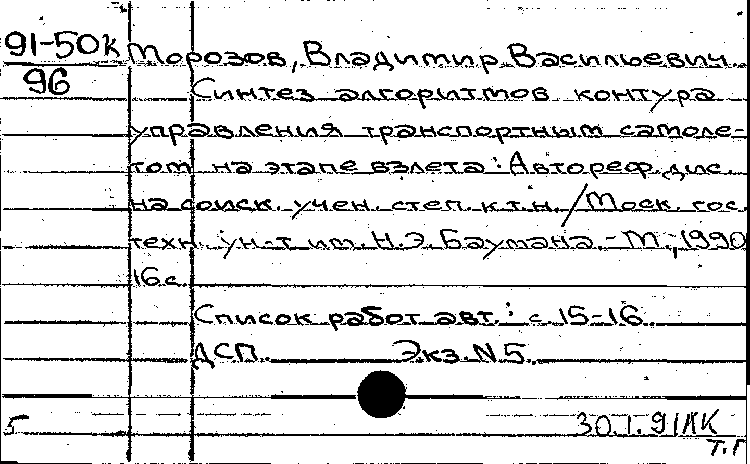 91-50к
96
Морозов, Владимир Васильевич
Синтез алгоритмов контура
управления транспортным самоле-
том на этапе взлета : Автореф. дис.
на соиск. учен. степ. к.т.н. / Моск. гос.
техн. ун-т им. Н.Э. Баумана. - М., 1990
16 с.
Список работ авт.: с. 15-16
ДСП. Экз. N 5.
5
30.1.91 КК
Т.Г